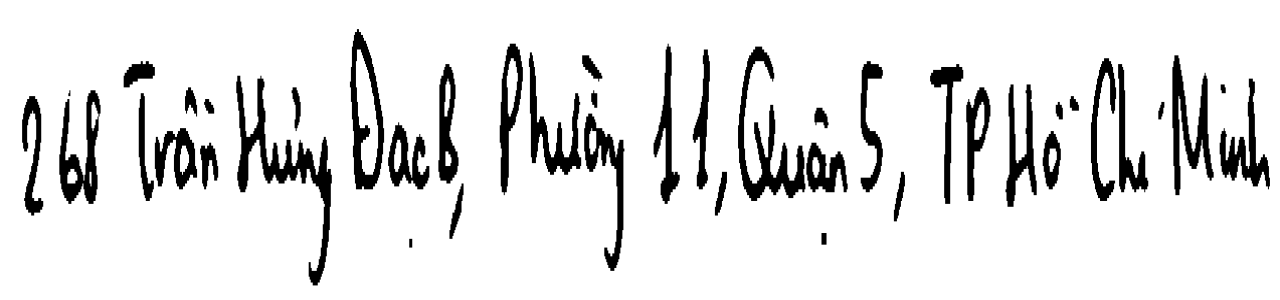 268 Trần Hưng Đạo B, Phường 11, Quận 5, TP Hồ Chí Minh